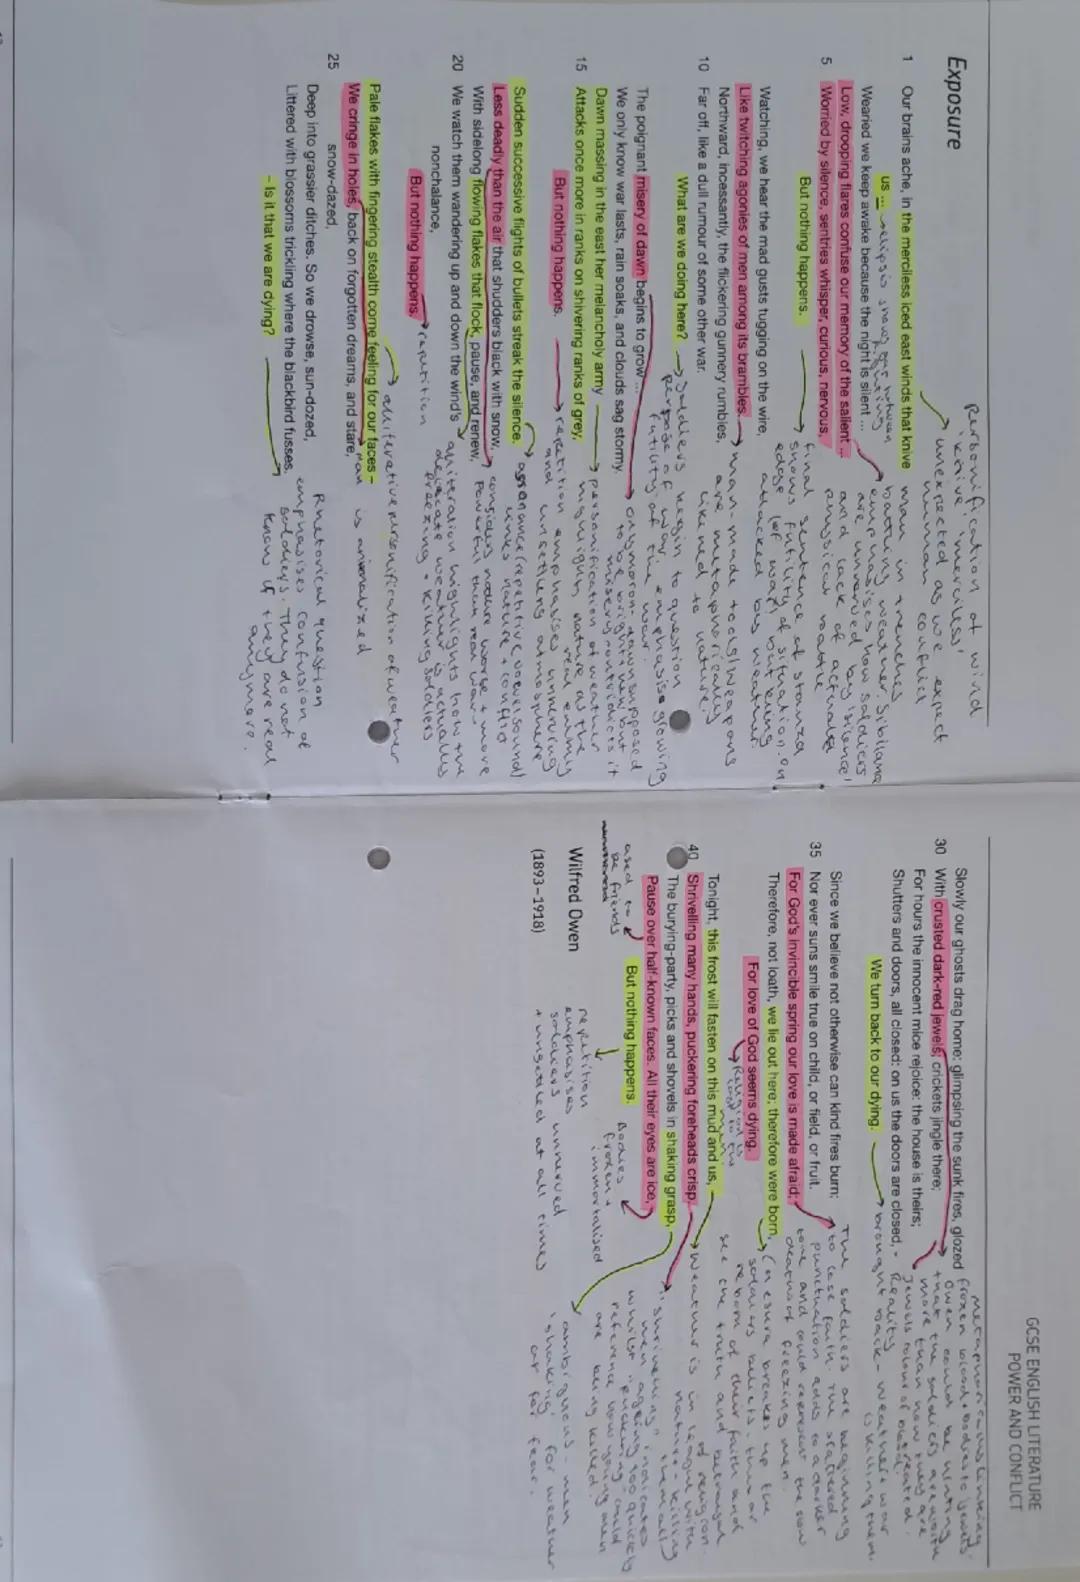 Exposure
personification of wind
'knive' 'merciless'
unexpected as we expect
human conflict
1 Our brains ache, in the merciless iced east winds that knive
us ...
ellipsis shows
man in trenches
Wearied we keep awake because the night is silent ...
battling weather. Sibilance
Low, drooping flares confuse our memory of the salient ...
emphasises how soldiers
are unnerved by 'silence'
5 Worried by silence, sentries whisper, curious, nervous,
and lack of actual
physical battle
But nothing happens.
final sentence of stanza
shows futility of situation. On
edge (of war) but being
attacked by weather
Watching, we hear the mad gusts tugging on the wire,
Like twitching agonies of men among its brambles.
man-made tools/weapons
are metaphorically
likened to nature
Northward, incessantly, the flickering gunnery rumbles,
10 Far off, like a dull rumour of some other war.
What are we doing here?
Soldiers begin to question
purpose of war. emphasise growing
futility of the war.
The poignant misery of dawn begins to grow ...
oxymoron - dawn supposed
to be bright + new but
misery contridicts it
We only know war lasts, rain soaks, and clouds sag stormy.
Dawn massing in the east her melancholy army
personification of weather
highlights nature as the
real enemy
15 Attacks once more in ranks on shivering ranks of grey,
But nothing happens.
repetition emphasises unnerving
and unsettling atmosphere
Sudden successive flights of bullets streak the silence.
assonance (repetitive vowel sound)
links nature + conflict
Less deadly than the air that shudders black with snow,
considers nature worse + more
powerful than real war
With sidelong flowing flakes that flock, pause, and renew,
alliteration highlights how the
delicate weather is actually
freezing + killing soldiers
20 We watch them wandering up and down the wind's
nonchalance,
But nothing happens.
repetition
Pale flakes with fingering stealth come feeling for our faces –
alliterative personification of weather
We cringe in holes, back on forgotten dreams, and stare,
man is animalized
snow-dazed,
25 Deep into grassier ditches. So we drowse, sun-dozed,
Littered with blossoms trickling where the blackbird fusses.
– Is it that we are dying?
Rhetorical question
emphasises confusion of
soldiers. They do not
know if they are real
anymore.
GCSE ENGLISH LITERATURE
POWER AND CONFLICT
Slowly our ghosts drag home: glimpsing the sunk fires, glozed
30 With crusted dark-red jewels; crickets jingle there;
metaphorically linking
frozen blood + bodies to jewels.
Owen could be hinting
that the soldiers are worth
more than how they are
treated.
Jewels colour of blood
For hours the innocent mice rejoice: the house is theirs;
Shutters and doors, all closed: on us the doors are closed, -
We turn back to our dying.
brought back - Reality
weather + war
is killing them.
Since we believe not otherwise can kind fires burn;
35 Nor ever suns smile true on child, or field, or fruit.
For God's invincible spring our love is made afraid;
The soldiers are beginning
to lose faith. The scattered
punctuation adds to a darker
tone and could represent the slow
deaths of freezing men.
Therefore, not loath, we lie out here; therefore were born,
Caesura breaks up the
soldiers beliefs - they are
reborn of their faith and
see the truth and betrayal
of religion.
For love of God seems dying.
Religion is
lost to the
men
Tonight, this frost will fasten on this mud and us,
weather is in league with
nature - killing
them all
40 Shrivelling many hands, puckering foreheads crisp.
"shrivelling" indicates
men ageing too quickly
whilst "puckering" could
reference how young men
are being killed.
The burying-party, picks and shovels in shaking grasp,
ambiguous - men
'shaking' for weather
or for fear.
Pause over half-known faces. All their eyes are ice,
used to
be friends
Bodies
frozen +
immortalised
But nothing happens.
repetition
emphasises
soldiers unnerved
+ unsettled at all times
Wilfred Owen
(1893–1918)